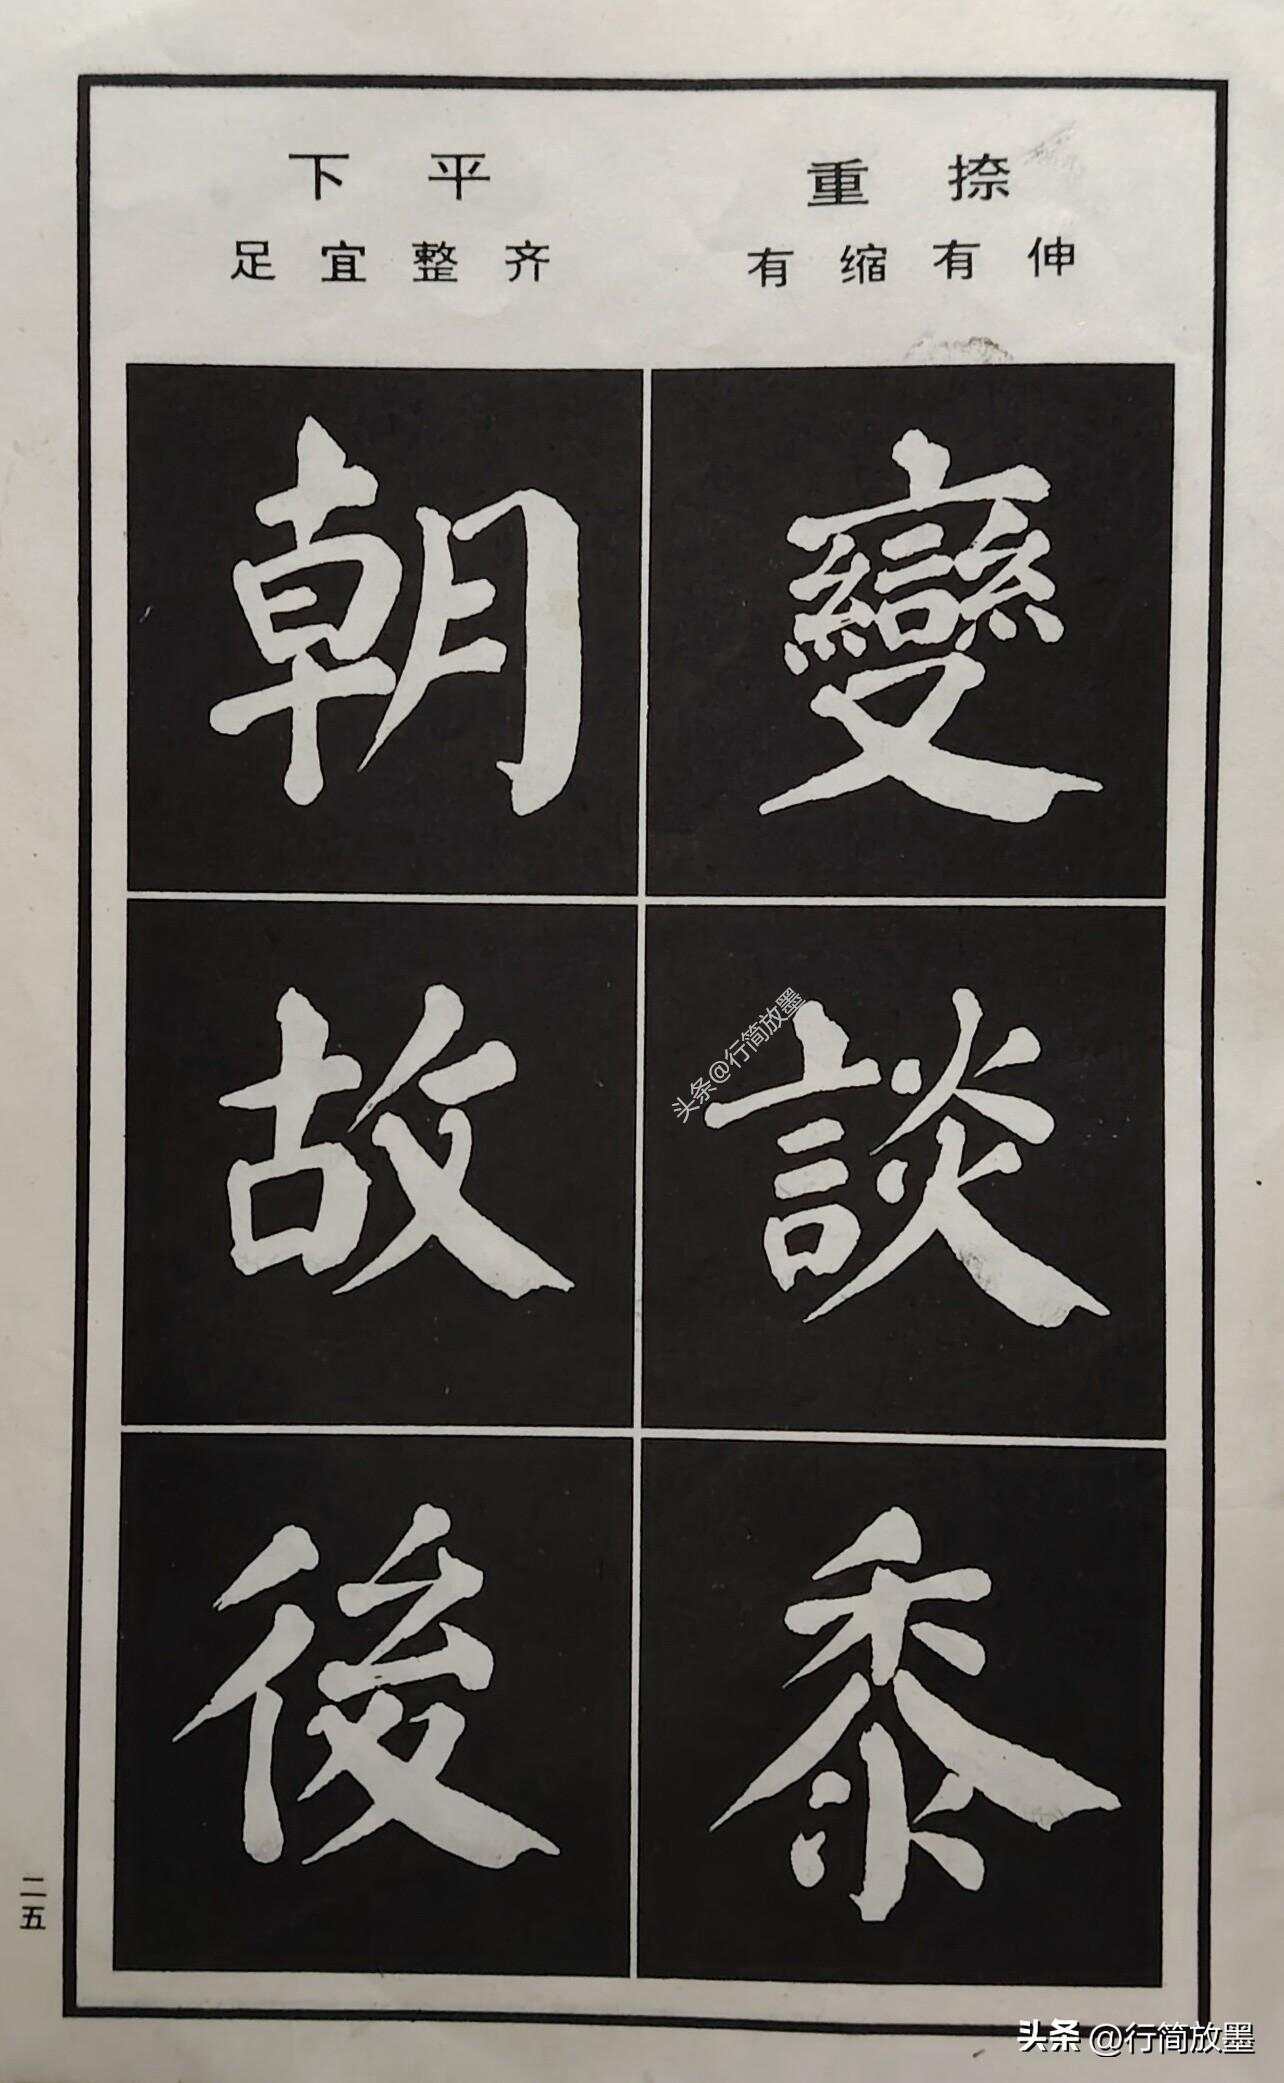 重捺
有缩有伸
變
談
黍
下平
足宜整齐
朝
故
後
二五
头条@行简放墨
头条 @行简放墨